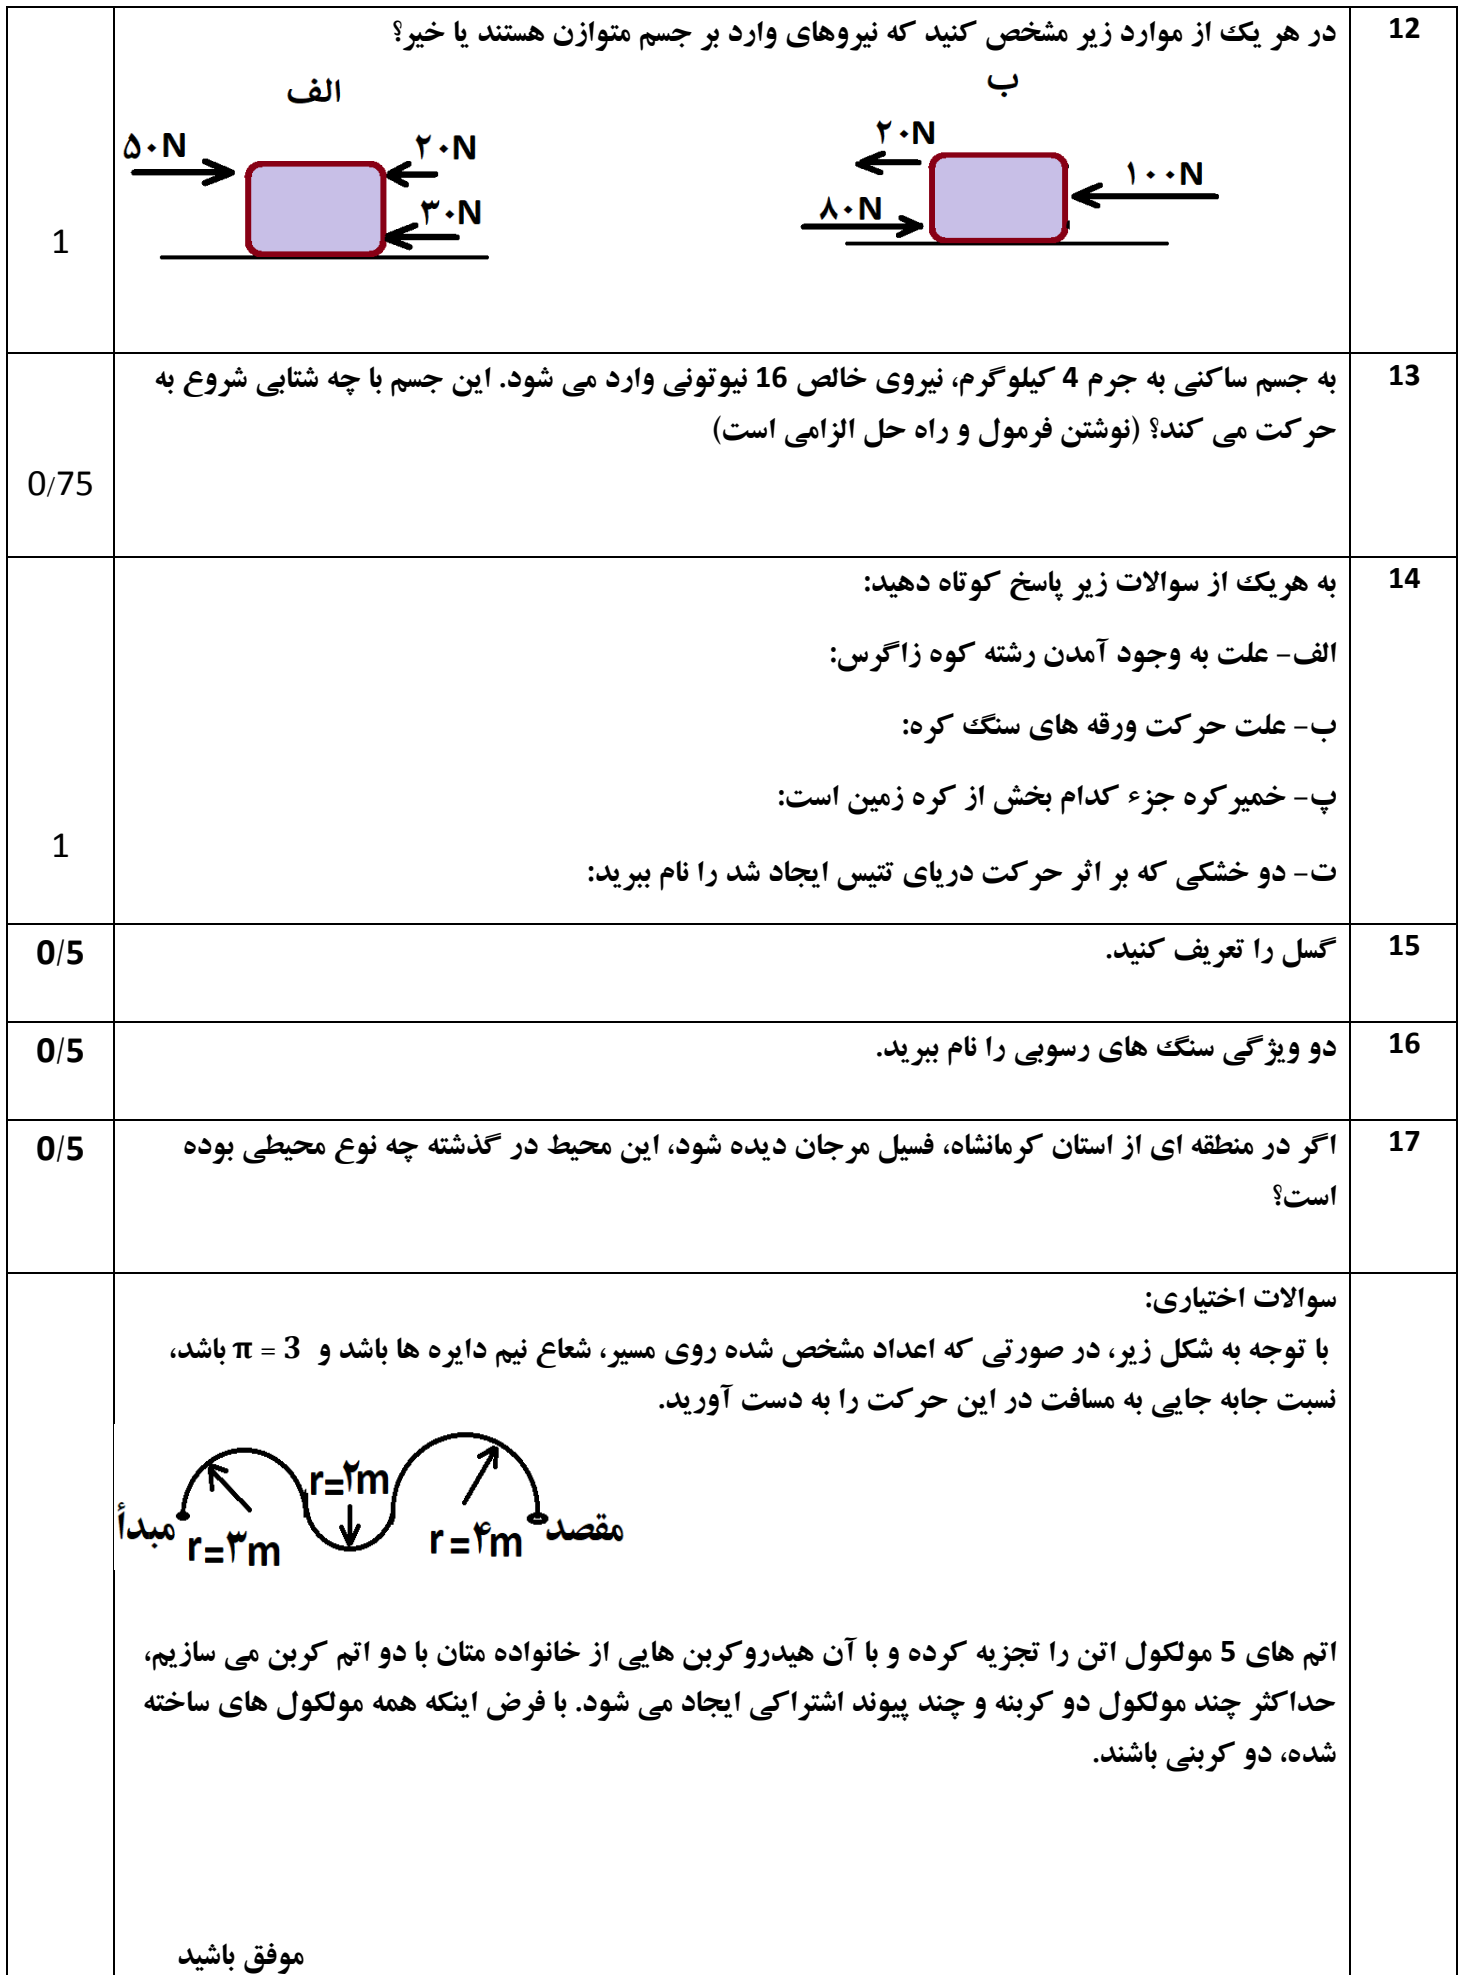 12
در هر یک از موارد زیر مشخص کنید که نیروهای وارد بر جسم متوازن هستند یا خیر؟
ب
الف
۲۰N
۱۰۰N
۸۰N
۵۰N
۲۰N
۳۰N
1
13
به جسم ساکنی به جرم 4 کیلوگرم، نیروی خالص 16 نیوتونی وارد می شود. این جسم با چه شتابی شروع به
حرکت می کند؟ (نوشتن فرمول و راه حل الزامی است)
0/75
14
به هریک از سوالات زیر پاسخ کوتاه دهید:
الف- علت به وجود آمدن رشته کوه زاگرس:
ب- علت حرکت ورقه های سنگ کره:
پ- خمیرکره جزء کدام بخش از کره زمین است:
ت- دو خشکی که بر اثر حرکت دریای تتیس ایجاد شد را نام ببرید:
1
15
گسل را تعریف کنید.
0/5
16
دو ویژگی سنگ های رسوبی را نام ببرید.
0/5
17
اگر در منطقه ای از استان کرمانشاه، فسیل مرجان دیده شود، این محیط در گذشته چه نوع محیطی بوده
است؟
0/5
سوالات اختیاری:
با توجه به شکل زیر، در صورتی که اعداد مشخص شده روی مسیر، شعاع نیم دایره ها باشد و π = 3 باشد،
نسبت جابه جایی به مسافت در این حرکت را به دست آورید.
r=۲m
مبدأ
r=۳m
r=۴m
مقصد
اتم های 5 مولکول اتن را تجزیه کرده و با آن هیدروکربن هایی از خانواده متان با دو اتم کربن می سازیم،
حداکثر چند مولکول دو کربنه و چند پیوند اشتراکی ایجاد می شود. با فرض اینکه همه مولکول های ساخته
شده، دو کربنی باشند.
موفق باشید